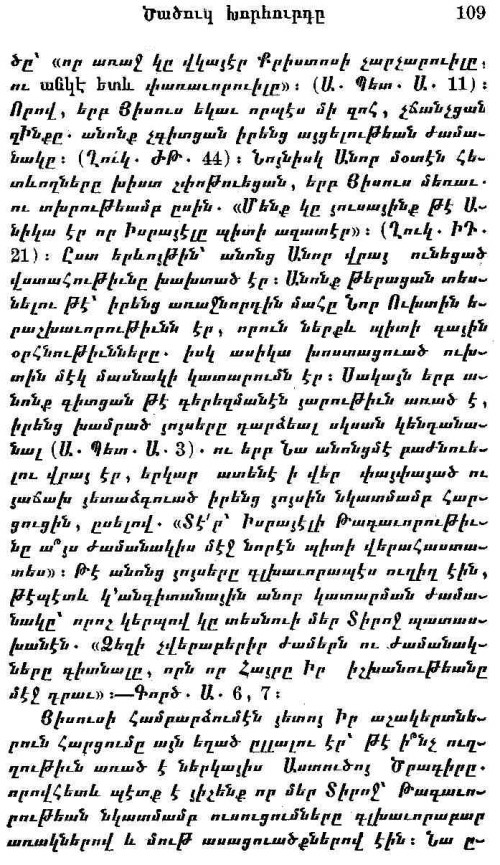 Ծածուկ Խորհուրդը 109
ծը՝ «որ առաջ կը վկայէր Քրիստոսի չարչարուիլը,
ու անկէ ետև փառաւորուիլը»։ (Ա. Պետ. Ա. 11)։
Որով, երբ Յիսուս եկաւ որպէս մի զոհ, չճանչցան
զինքը. անոնք չգիտցան իրենց այցելութեան ժամա-
նակը։ (Ղուկ. ԺԹ. 44)։ Նոյնիսկ Անոր մօտէն Հե-
տևողները խիստ չփոթուեցան, երբ Յիսուս մեռաւ.
ու տխրութեամբ ըսին. «Մենք կը յուսայինք թէ Ա-
նիկա էր որ Իսրայէլը պիտի ազատէր»։ (Ղուկ. ԻԴ.
21)։ Ըստ երևոյթին՝ անոնց Անոր վրայ ունեցած
վստահութիւնը խախտած էր։ Անոնք թերացան տես-
նելու թէ՝ իրենց առաջնորդին մահը Նոր Ուխտին ե-
րաշխաւորութիւնն էր, որուն ներքև պիտի գային
օրհնութիւնները. իսկ ասիկա խոստացուած ուխ-
տին մէկ մասնակի կատարումն էր։ Սակայն երբ ա-
նոնք գիտցան թէ գերեզմանէն յարութիւն առած է,
իրենց խամրած յոյսերը դարձեալ սկսան կենդանա-
նալ (Ա. Պետ. Ա. 3). ու երբ Նա անոնցմէ բաժնուե-
լու վրայ էր, երկար ատենէ ի վեր փայփայած ու
յաճախ յետաձգուած իրենց յոյսին նկատմամբ Հար-
ցուցին, ըսելով. «Տէ՛ր՝ Իսրայէլի Թագաւորութիւ-
նը ա՞յս ժամանակիս մէջ նորէն պիտի վերահաստա-
տես»։ Թէ անոնց յոյսերը գլխաւորապէս ուղիղ էին,
թէպէտև կ՚անգիտանային անոր կատարման ժամա-
նակը՝ որոշ կերպով կը տեսնուի մեր Տիրոջ պատաս-
խանէն. «Ձեզի չվերաբերիր ժամերն ու ժամանակ-
ները գիտնալը, որն որ Հայրը Իր իշխանութեանը
մէջ դրաւ»։—Գործ. Ա. 6, 7։
Յիսուսի Համբարձումէն յետոյ Իր աշակերտնե-
րուն Հարցումը այն եղած ըլլալու էր՝ թէ ի՞նչ ուղ-
ղութիւն առած է ներկայիս Աստուծոյ Ծրագիրը.
որովհետև պէտք է յիշենք որ մեր Տիրոջ՝ Թագաւո-
րութեան նկատմամբ ուսուցումները գլխաւորաբար
առակներով և մութ ասացուածքներով էին։ Նա ը-